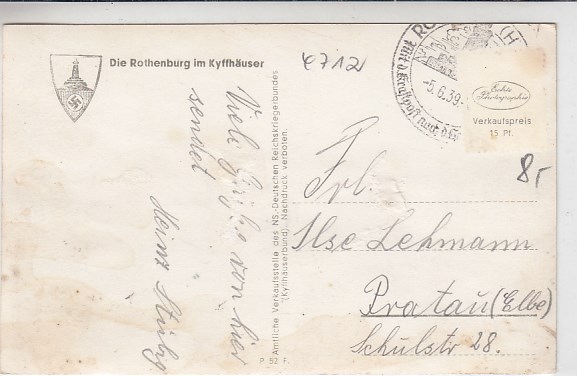 Die Rothenburg im Kyffhäuser
4712
-5.6.39.
Echte
Photographie
Verkaufspreis
15 Pf.
8,-
Viele Grüße von hier
sendet
Heinz
Amtliche Verkaufsstelle des NS.-Deutschen Reichskriegerbundes
(Kyffhäuserbund). Nachdruck verboten.
P 52 F.
Frl.
Ilse Lehmann
Pratau (Elbe)
Schulstr 28.